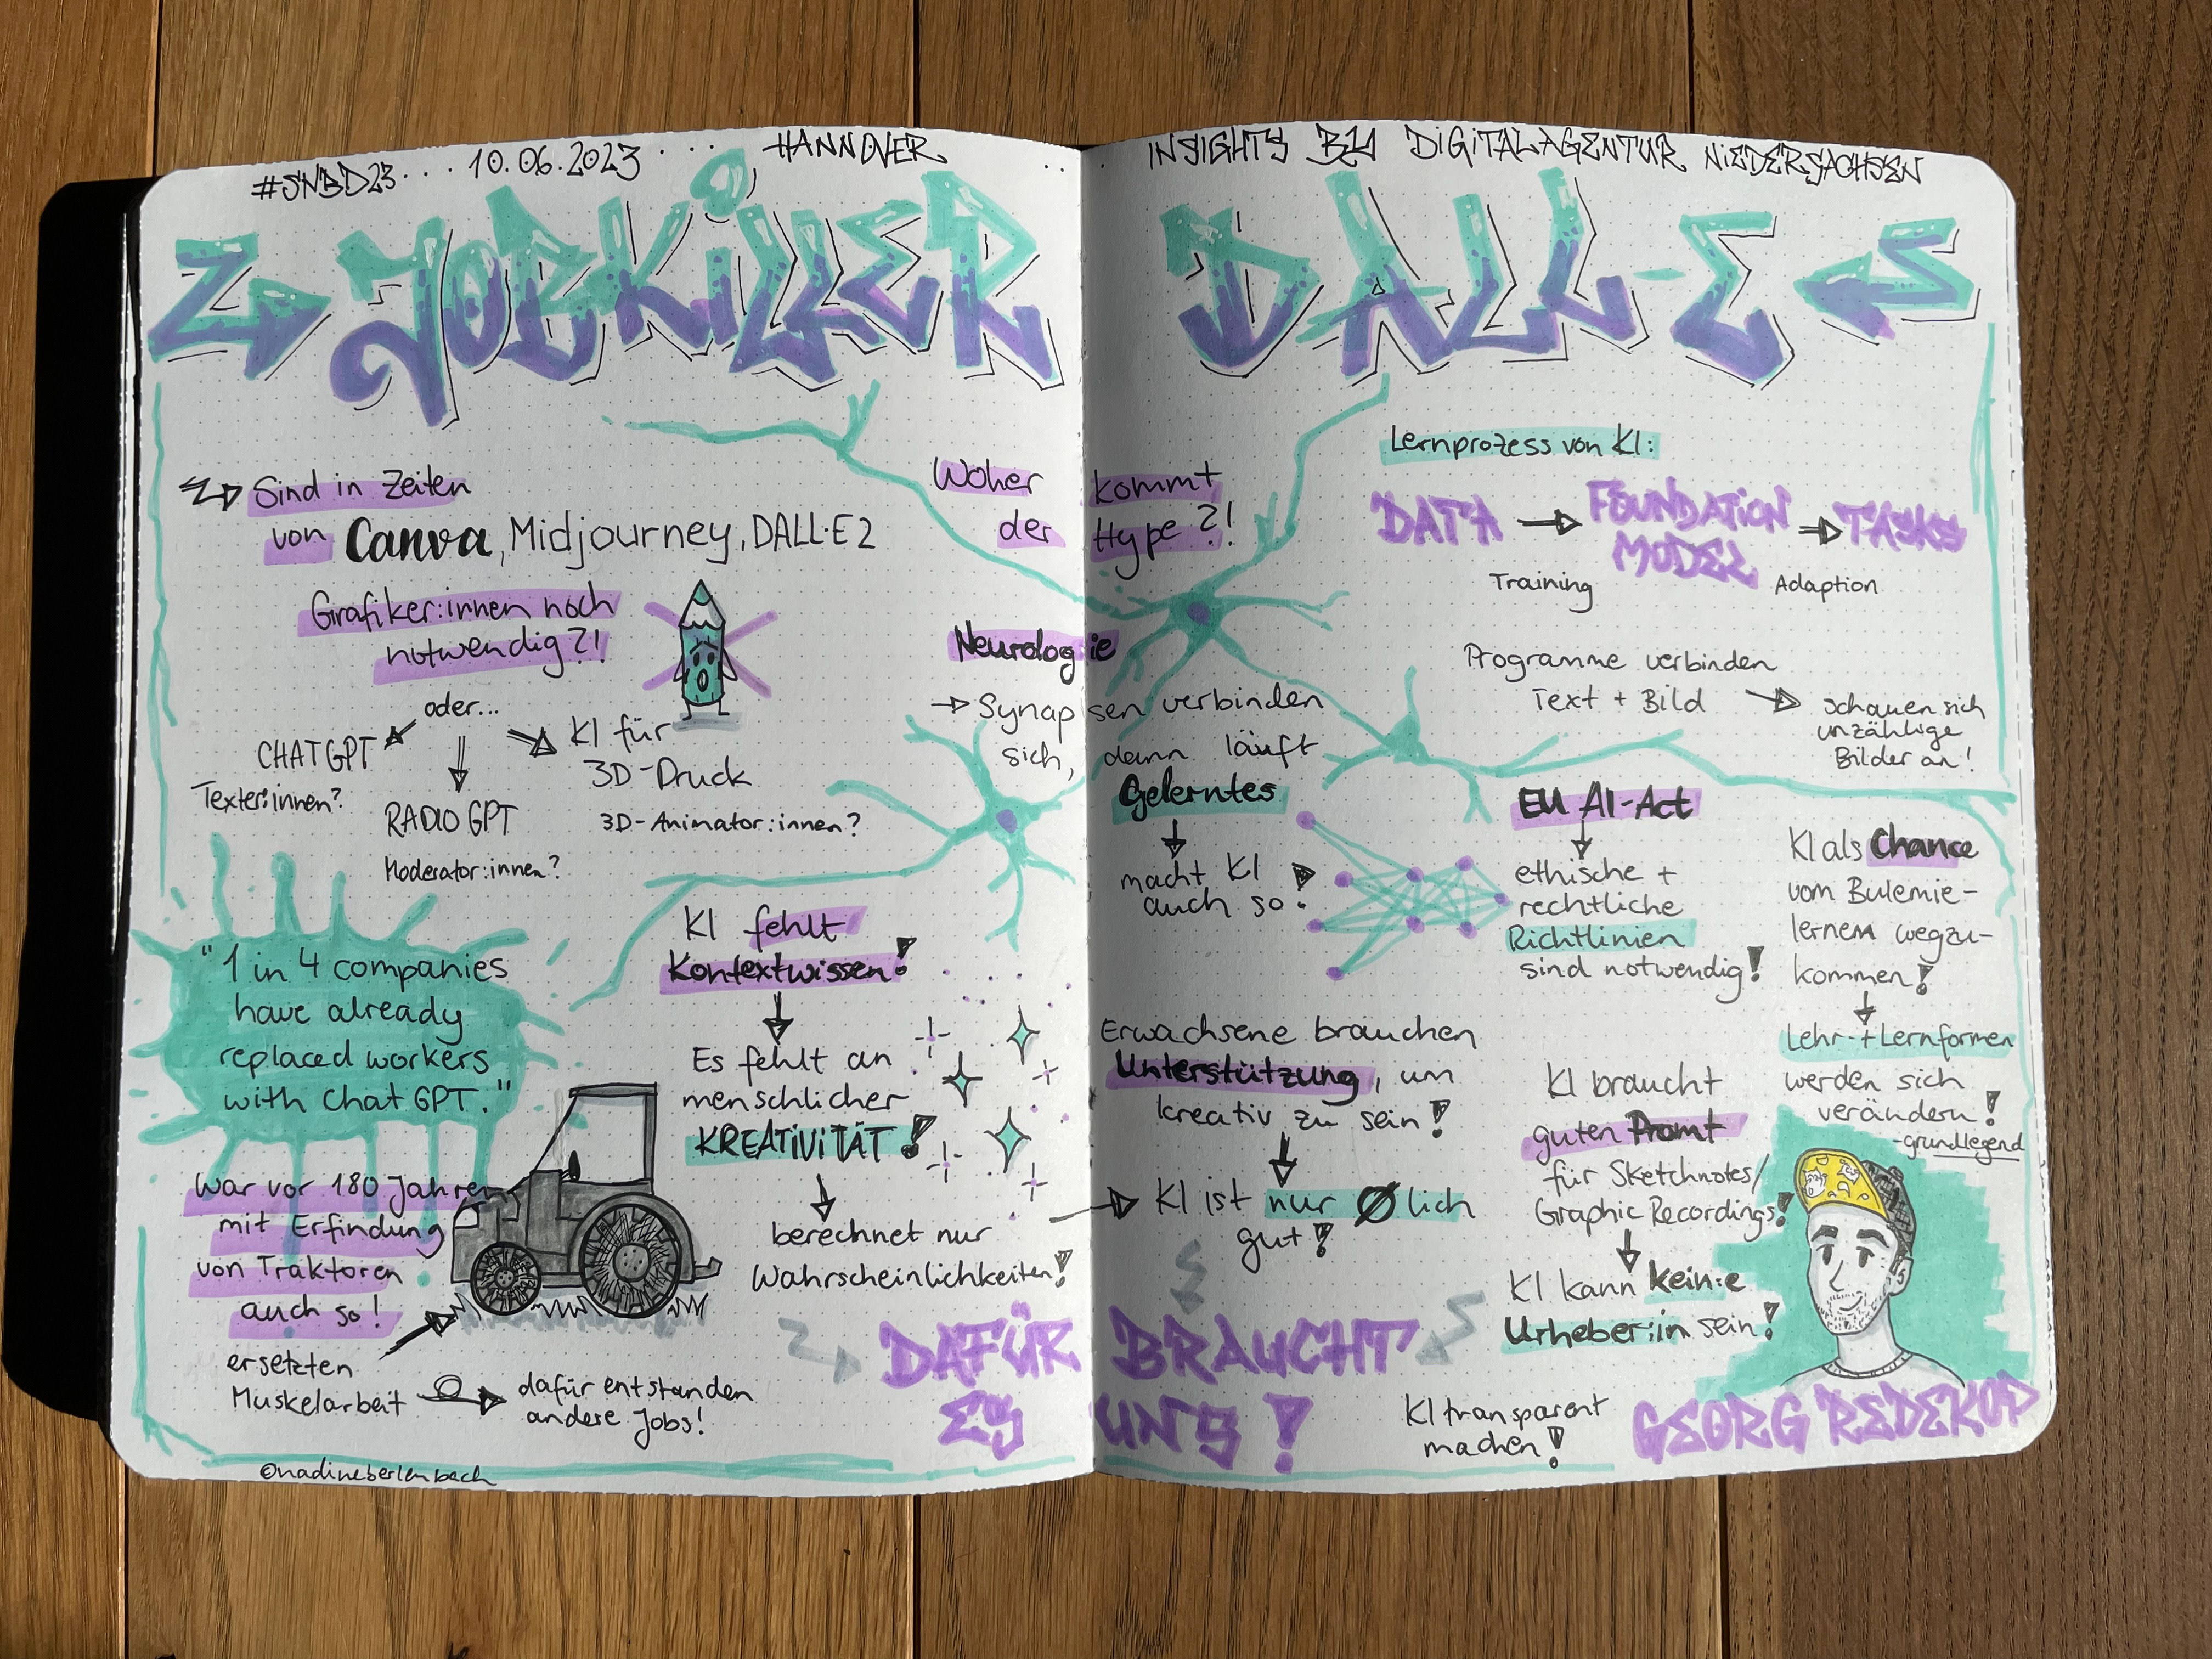 #SNBD23 ... 10.06.2023 .... HANNOVER .. . INSIGHTS BY DIGITALAGENTUR NIEDERSACHSEN
JOBKILLER DALL-E
Sind in Zeiten
von Canva, Midjourney, DALL·E 2
Grafiker:innen noch
notwendig?!
oder...
CHATGPT
Texter:innen?
RADIO GPT
Moderator:innen?
KI für
3D-Druck
3D-Animator:innen?
"1 in 4 companies
have already
replaced workers
with Chat GPT."
War vor 180 Jahren
mit Erfindung
von Traktoren
auch so!
ersetzten
Muskelarbeit
dafür entstanden
andere Jobs!
©nadineberlenbach
KI fehlt
Kontextwissen!
Es fehlt an
menschlicher
KREATIVITÄT!
berechnet nur
Wahrscheinlichkeiten!
Woher kommt
der Hype?!
Neurologie
→ Synapsen verbinden
sich, dann läuft
Gelerntes
macht KI
auch so!
Erwachsene brauchen
Unterstützung, um
kreativ zu sein!
KI ist nur Ølich
gut!
DAFÜR BRAUCHT
ES UNS!
Lernprozess von KI:
DATA → FOUNDATION MODEL → TASKS
Training Adaption
Programme verbinden
Text + Bild
schauen sich
unzählige
Bilder an!
EU AI-Act
ethische +
rechtliche
Richtlinien
sind notwendig!
KI als Chance
vom Bulemie-
lernen wegzu-
kommen!
Lehr- + Lernformen
werden sich
verändern!
-grundlegend
KI braucht
guten Promt
für Sketchnotes/
Graphic Recordings!
KI kann kein:e
Urheber:in sein!
KI transparent
machen!
GEORG REDEKOP